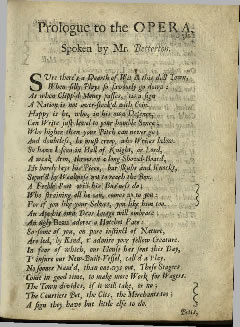 Prologue to the OPERA.
Spoken by Mr. Betterton.
SUre there's a Dearth of Wit in this dull Town,
When silly Plays so savourly go down:
As when Clipp'd Money passes, 'tis a sign
A Nation is not over-stock'd with Coin.
Happy is he, who, in his own Defence,
Can Write just level to your humble Sence;
Who higher than your Pitch can never go;
And doubtless, he must creep, who Writes below.
So have I seen in Hall of Knight, or Lord,
A weak Arm, throw on a long Shovel-Board,
He barely lays his Piece, bar Rubs and Knocks,
Secur'd by Weakness not to reach the Box.
A Feeble Poet will his Bus'ness do;
Who straining all he can, comes up to you:
For if you like your Selves, you like him too.
An Ape his own Dear Image will embrace;
An ugly Beau adores a Hatchet Face:
So some of you, on pure instinct of Nature,
Are led, by Kind, t' admire your fellow Creature.
In fear of which, our House has sent this Day,
T' insure our New-Built-Vessel, call'd a Play.
No sooner Nam'd, than one crys out, These Stagers
Come in good time, to make more Work for Wagers.
The Town divides, if it will take, or no;
The Courtiers Bet, the Cits, the Merchants too;
A sign they have but little else to do.
Betts,